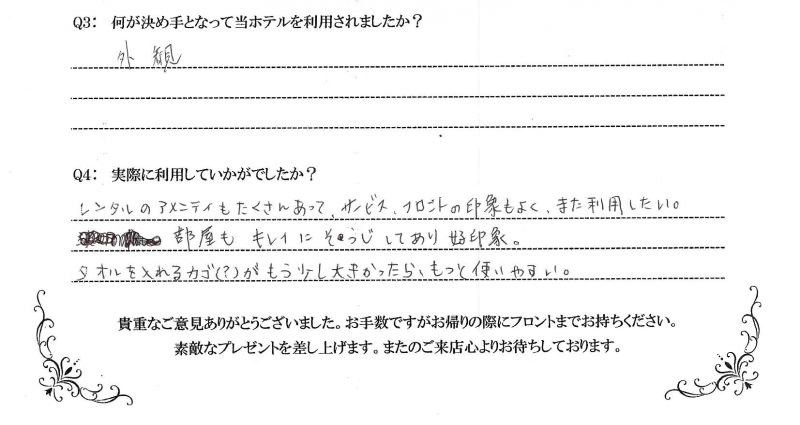 Q3： 何が決め手となって当ホテルを利用されましたか？
外観
Q4： 実際に利用していかがでしたか？
レンタルのアメニティもたくさんあって、サービス、フロントの印象もよく、また利用したい。
部屋も キレイにそうじしてあり 好印象。
タオルを入れるカゴ(?)がもう少し大きかったら、もっと使いやすい。
貴重なご意見ありがとうございました。お手数ですがお帰りの際にフロントまでお持ちください。
素敵なプレゼントを差し上げます。またのご来店心よりお待ちしております。